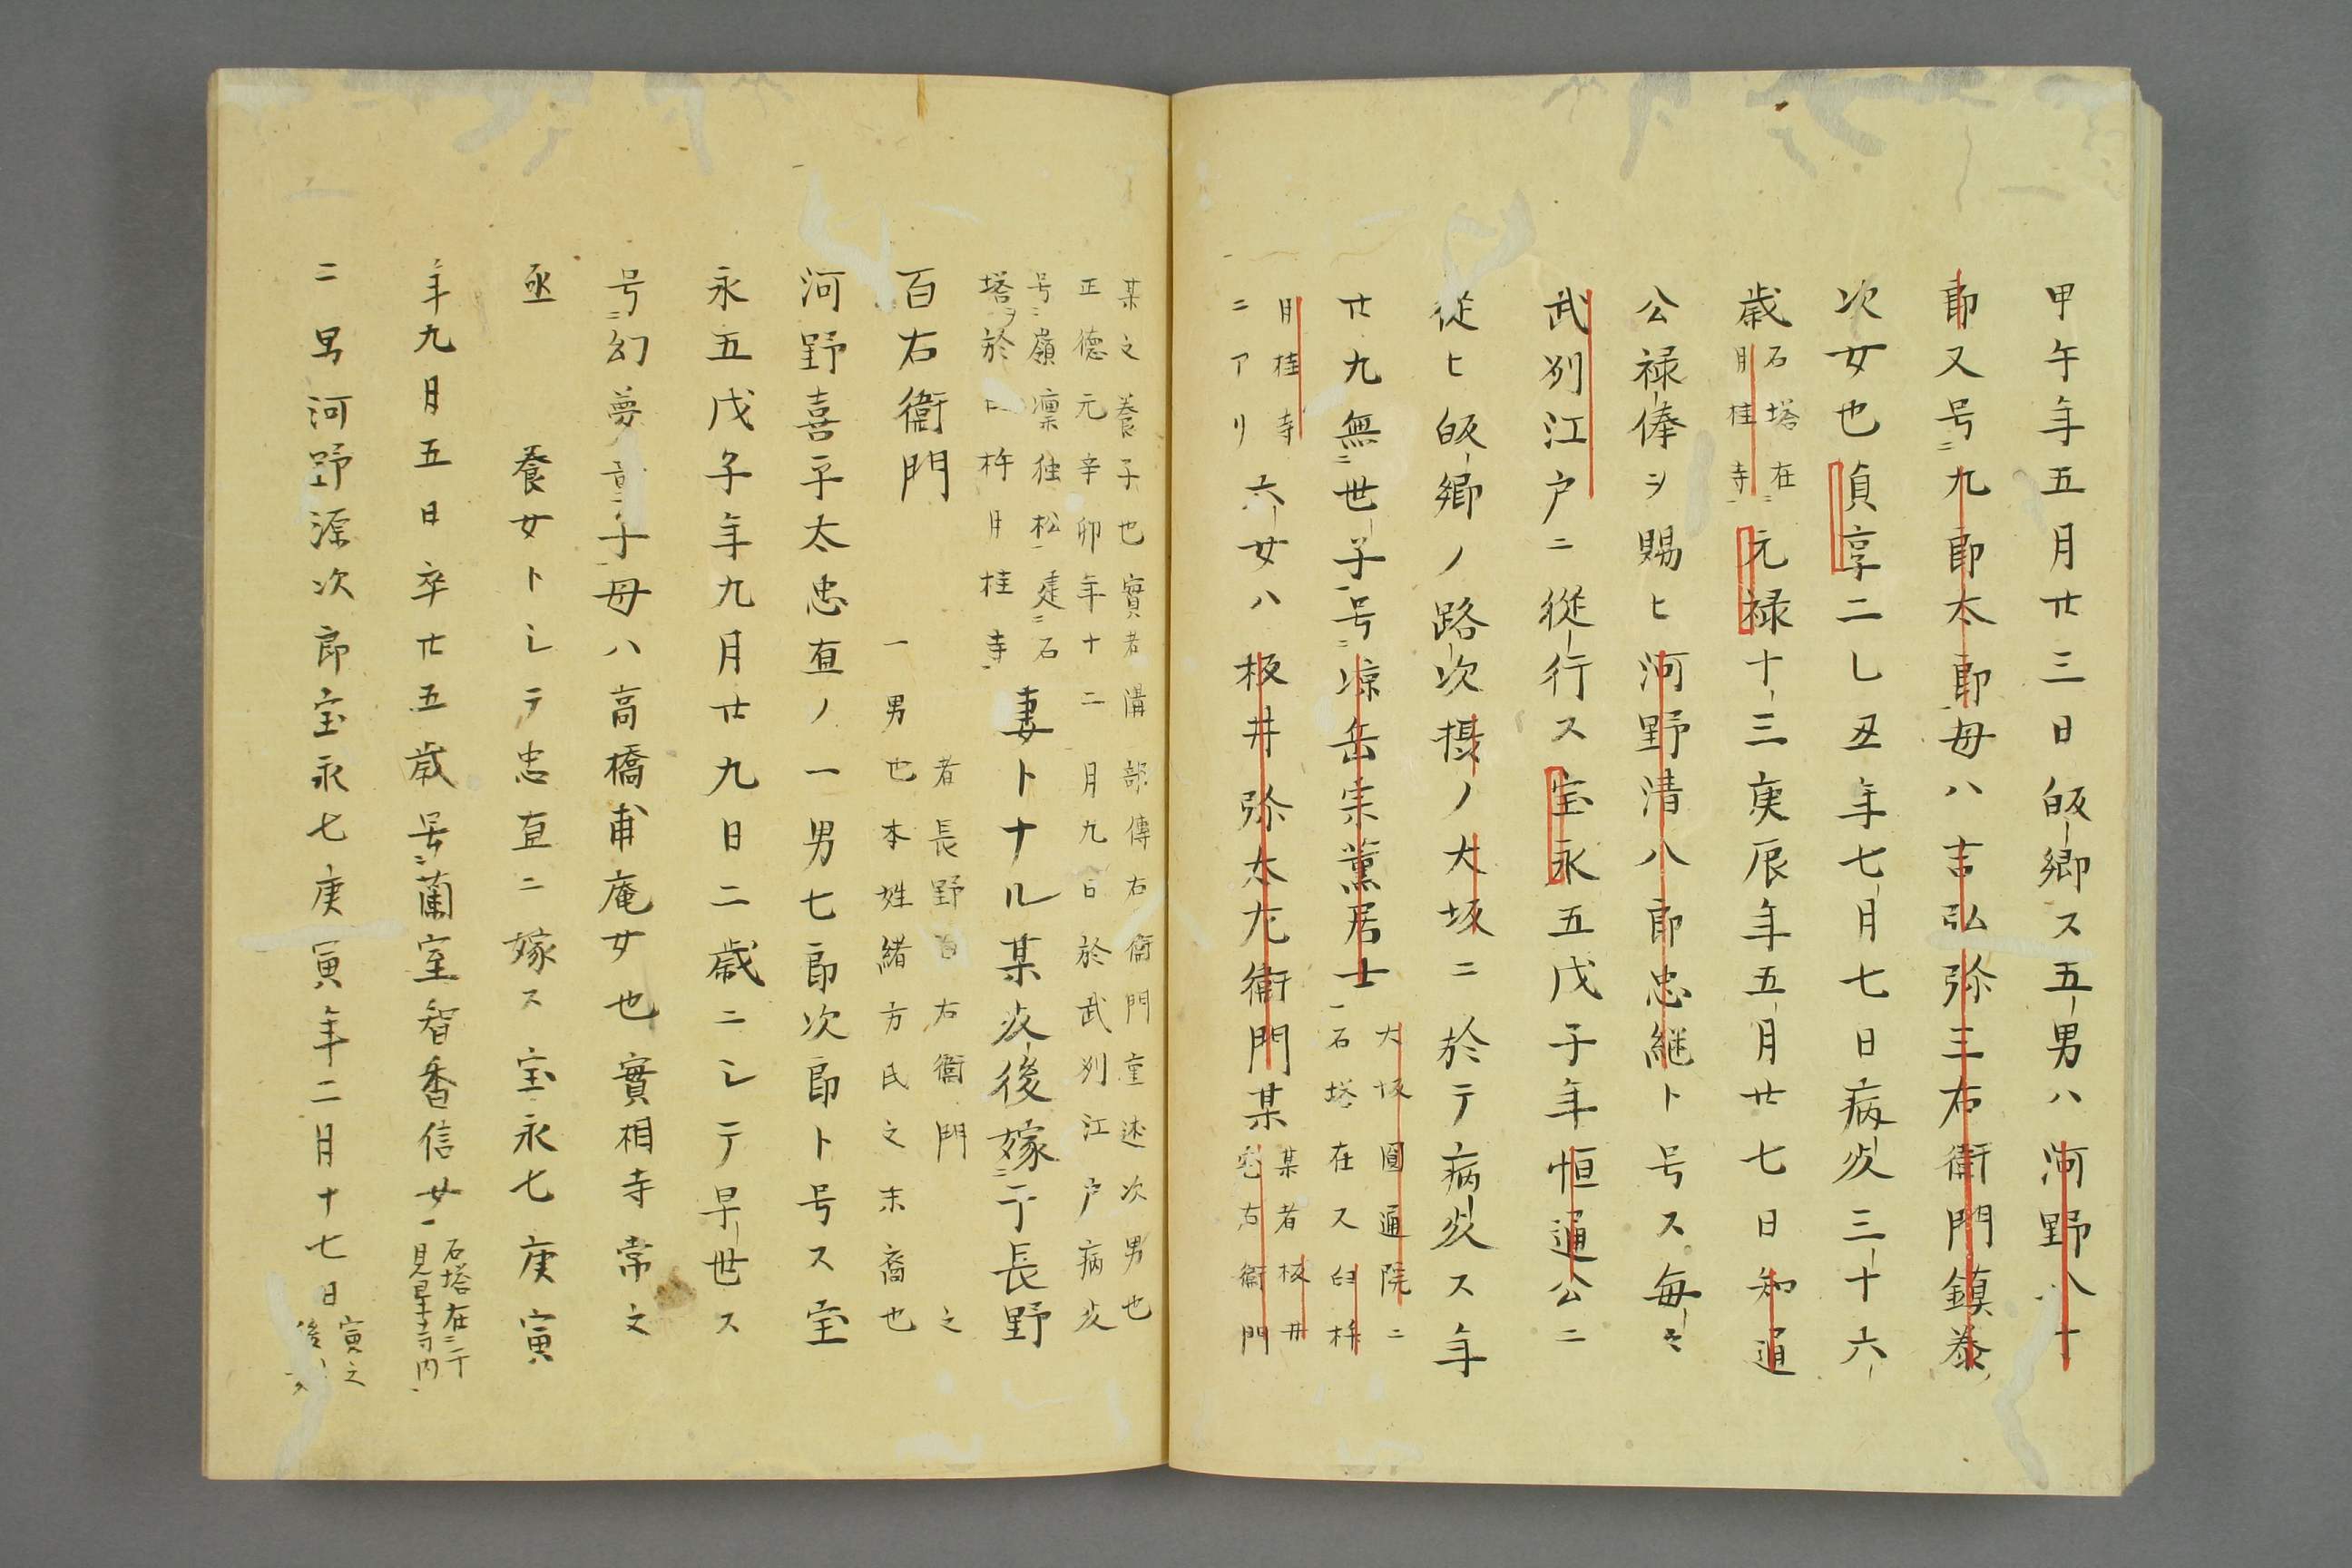 甲午年五月廿三日皈郷ス五男ハ河野八十
郎又号ニ九郎太郎母ハ吉弘弥三右衛門鎮泰
次女也貞享二乚丑年七月七日病死三十六
歳石塔在ニ
月桂寺元禄十三庚辰年五月廿七日知通
公禄俸ヲ賜ヒ河野清八郎忠継ト号ス毎々
武刕江戸ニ従行ス宝永五戊子年恒通公ニ
従ヒ皈郷ノ路次摂ノ大坂ニ於テ病死ス年
廿九無ニ世子一号ニ凉岳宗薫居士一大坂圓通院ニ
石塔在又臼杵
月桂寺
ニアリ六女ハ板井弥太左衛門某某者板井
宅右衛門
某之養子也實者溝部傳右衛門重述次男也
正徳元辛卯年十二月九日於武刕江戸病死
号ニ嶺凛独松一建ニ石
塔ヲ於臼杵月桂寺妻トナル某死後嫁ニ于長野
百右衛門者長野百右衛門之
一男也本姓緒方氏之末裔也
河野喜平太忠直ノ一男七郎次郎ト号ス宝
永五戊子年九月廿九日二歳ニシテ早世ス
号ニ幻夢童子一母ハ高橋甫庵女也實相寺常文
亟養女トシテ忠直ニ嫁ス宝永七庚寅
年九月五日卒廿五歳号ニ蘭室智香信女一石塔在ニ于
見星寺内一
二男河野源次郎宝永七庚寅年二月十七日寅之
後刻